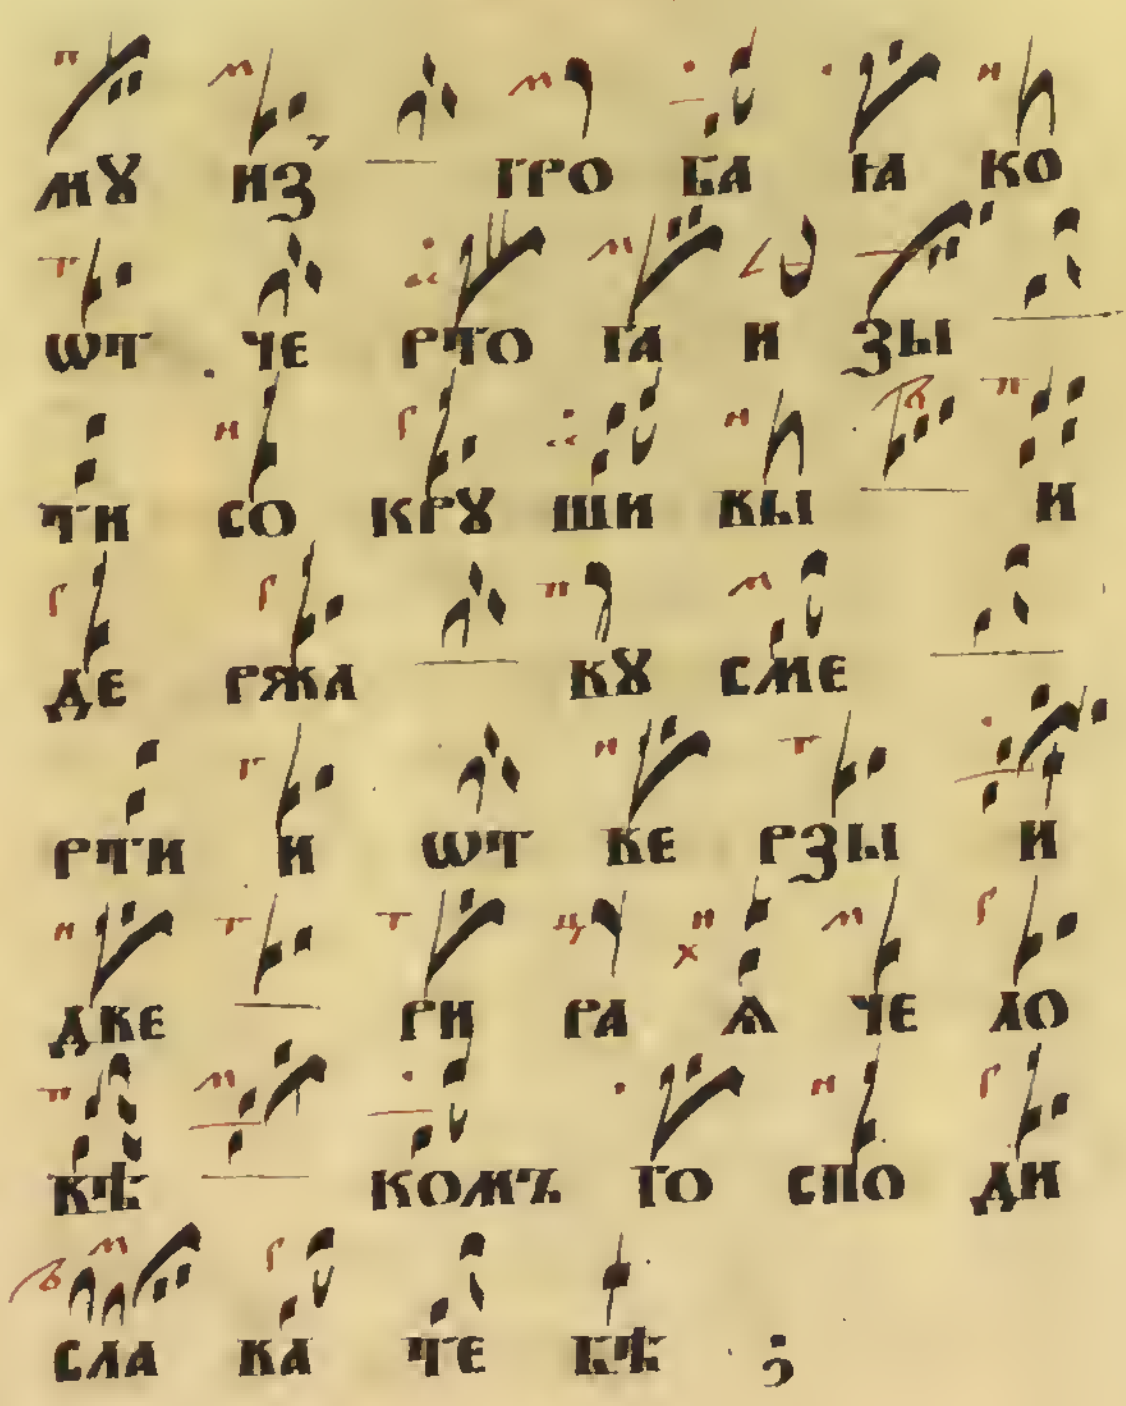 мꙋ из гро ба ꙗ ко
ѿ че рто га и зы
ти со крꙋ ши вы и
де ржа вꙋ сме
рти и ѿ ве рзы и
две ри ра ѧ че ло
вѣ комъ го спо ди
сла ва те бѣ